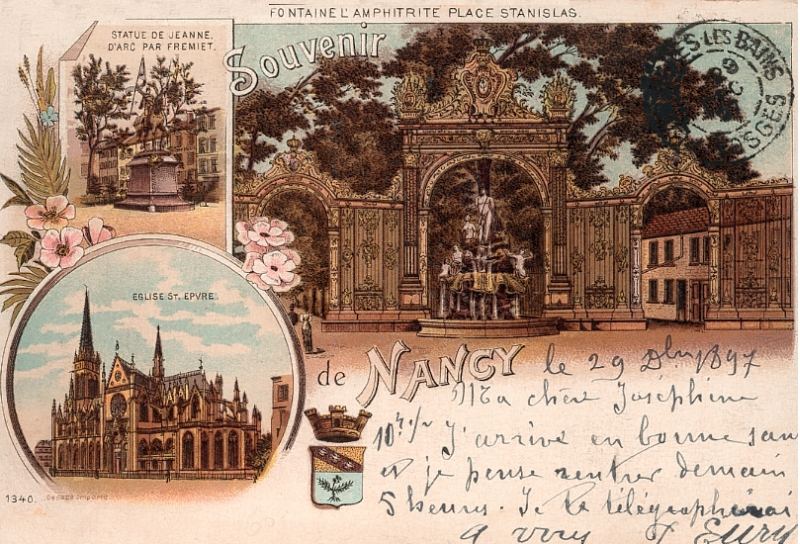 FONTAINE L'AMPHITRITE PLACE STANISLAS.
STATUE DE JEANNE,
D'ARC PAR FREMIET.
Souvenir
LES-BAINS
EGLISE ST. EPVRE.
de NANCY le 29 Xbre 1897
Ma chère Joséphine
J'arrive en bonne san
et je pense rentrer demain
5 heures. Je te télégraphierai
1340.